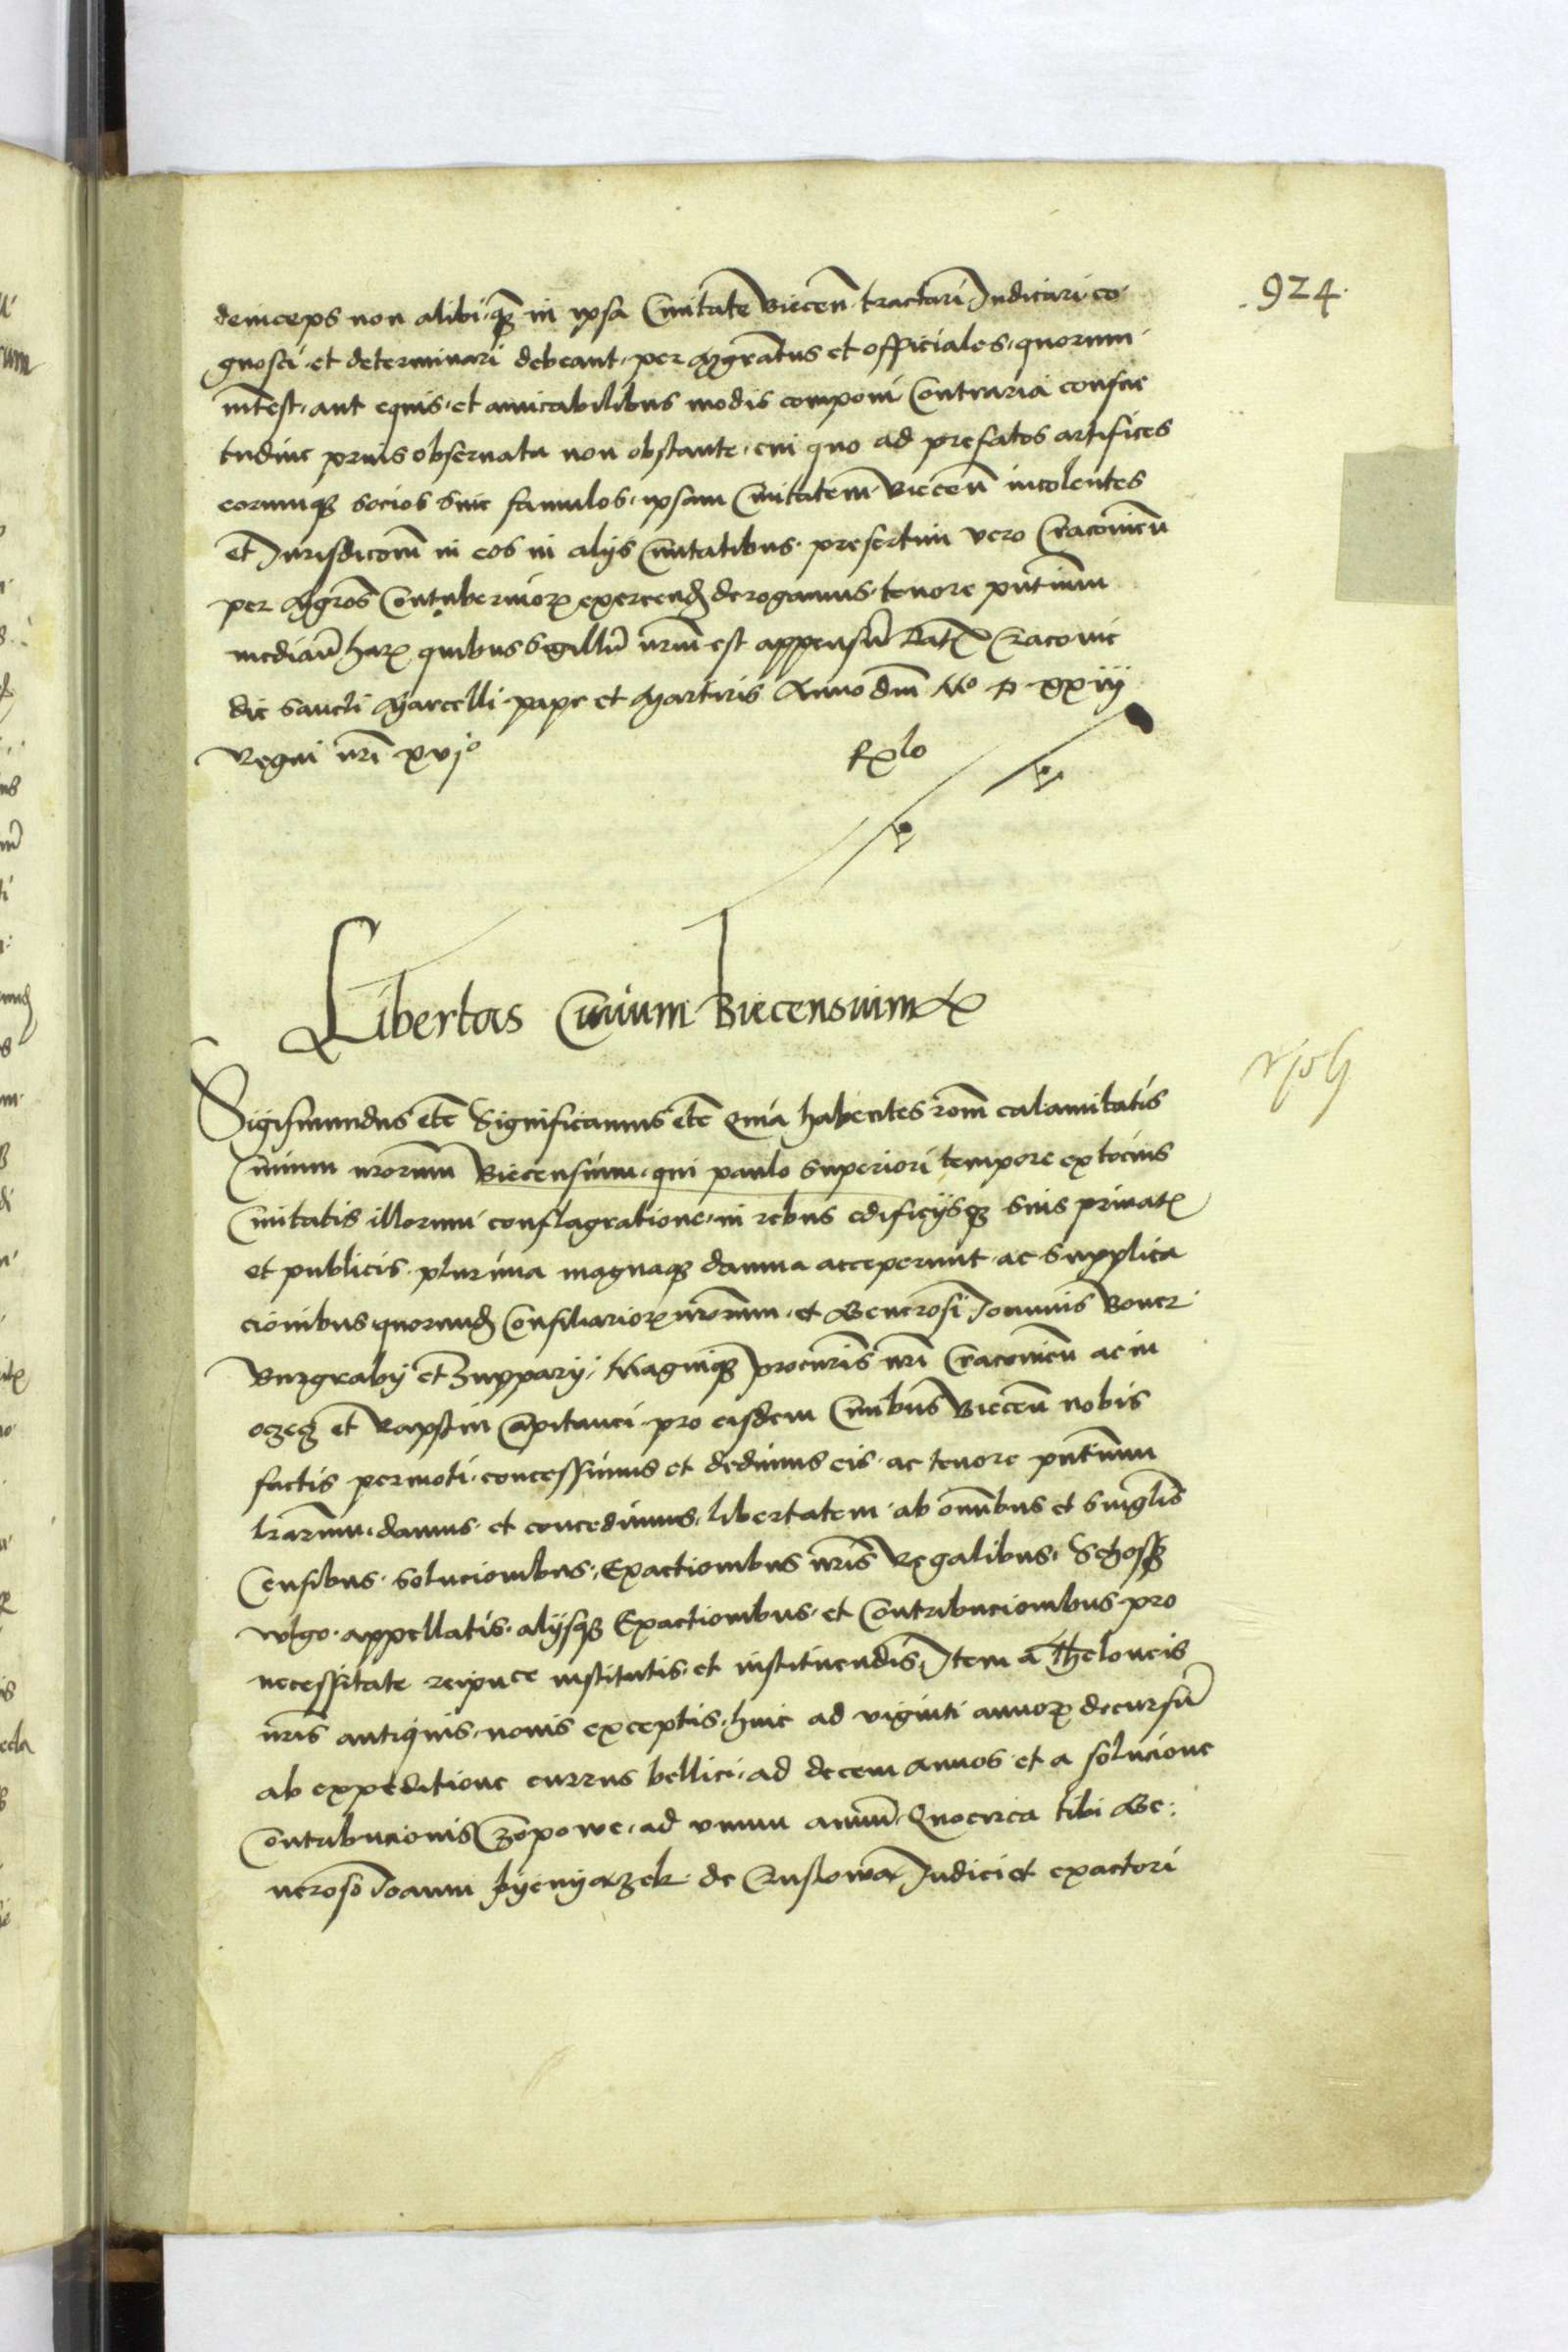 924
deinceps non alibi, q̃ in ipsa Ciuitate Biecen̄ tractari Iudicari co
gnosci et determinari debeant, per Mgr̃atus et officiales, quorum
int̃est, aut equis, et amicabilibus modis componi Contraria consue
tudine prius obseruata non obstante, cui quo ad prefatos artifices
eorumq̃ socios siue famulos, ipsam Ciuitatem Biecen̄ incolentes
et Iurisdicõm in eos in alijs Ciuitatibus, presertim vero Cracouien̄
per Mgr̃os Contubernioꝝ exercend̃ derogamus, tenore pñtium
median̄ harꝝ quibus Sigillũ nrm̃ est appensũ Datꝝ Cracouie
die Sancti Marcelli pape et Martiris Anno dm̃ Mo D xxiij
Regni nrĩ xvjo
Rꝝlo
Libertas Ciuium Biecensium
Sigismundus etc̃ Significamus etc̃ Quia habentes rõm calamitatis
Ciuium nrorum Biecensium, qui paulo superiori tempore ex tocius
Ciuitatis illorum conflagratione, in rebus edificijsq̃ suis priuatꝝ
et publicis plurima magnaq̃ damna acceperunt, ac Supplica
cionibus quorund̃ Consiliarioꝝ nrorum, et Generosi Ioannis Boner
Burgrabij et Zupparij, Magniq̃ procur̃is nrĩ Cracouien̄ ac in
oczecz et Rapstin Capitanei pro eisdem Ciuibus Biecen̄ nobis
factis permoti, concessimus et dedimus eis, ac tenore pñtium
lrãrum, damus et concedimus, libertatem ab om̃ibus et singlis̃
Censibus, Solucionibus, Exactionibus nris̃ Regalibus, Schosz
wlgo appellatis, alijsq̃ Exactionibus, et Contribucionibus pro
necessitate reipu᷒ce institutis, et instituendis, Item a Theloneis
nris̃ antiquis, nouis exceptis, hinc ad viginti annoꝝ decursũ
ab expeditione currus bellici, ad decem annos et a solucione
Contribucionis Czopowe, ad vnum annũ, Quocirca tibi Ge:
neroso Ioanni Pyenyazek de Crusłowa Iudici et exactori